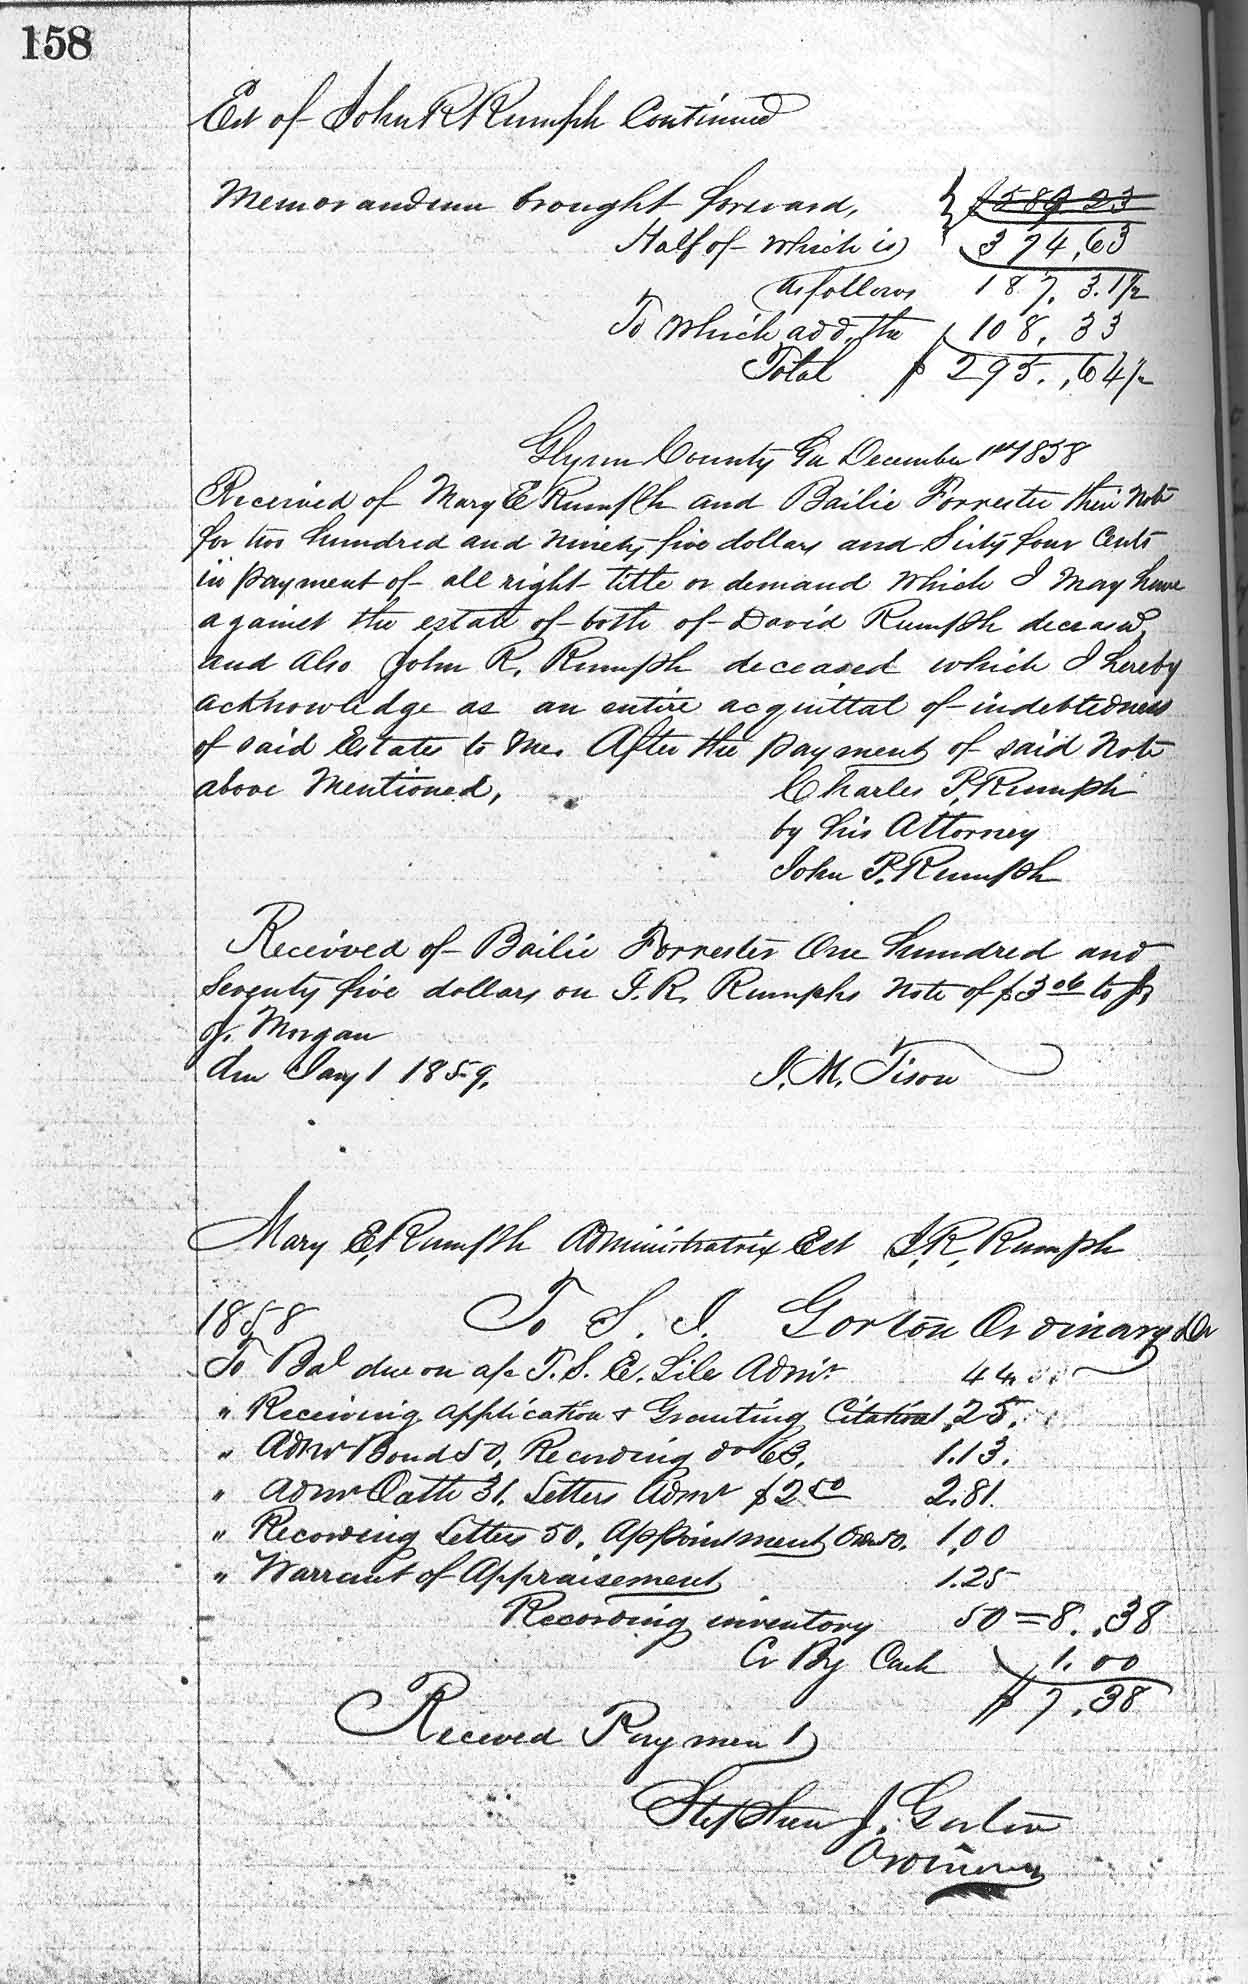 158
Est of John R Rumph Continued
Memorandum brought forward, $589 23
Half of which is 374,63
as follows 187,3.1/2
To which add, the 108,33
Total $295.,64 1/2
Glynn County Ga December 1st 1858
Received of Mary E Rumph and Bailie Forrester their Note
for two hundred and ninety five dollars and Sixty four Cents
in payment of all right title or demand which I may have
against the estate of both of David Rumph deceased,
and also John R. Rumph deceased which I hereby
acknowledge as an entire acquittal of indebtedness
of said Estates to me. After the payment of said Note
above Mentioned,
Charles P. Rumph
by his Attorney
John P. Rumph
Received of Bailie Forrester One hundred and
Seventy five dollars on J. R. Rumphs Note of $306 to J,
J. Morgan
Jany 1 1859,
J. M. Tison
Mary E, Rumph Administratrix Est J. R. Rumph
1858 To S. J. Gorton Ordinary Dr
To Bal due on a/c T. S. E. Lile Admr 44
" Receiving application & Granting Citation 1,25.
" Admr Bond 50, Recording do 63, 1.13.
" Admr Oath 31. Letters Admr $2 50 2.81.
" Recording Letters 50. Appointment 50. 1,00
" Warrant of Appraisement 1.25
Recording inventory 50 = 8.,38
Cr By Cash 1.00
$7,38
Received Payment
Stephen J. Gorton
Ordinary